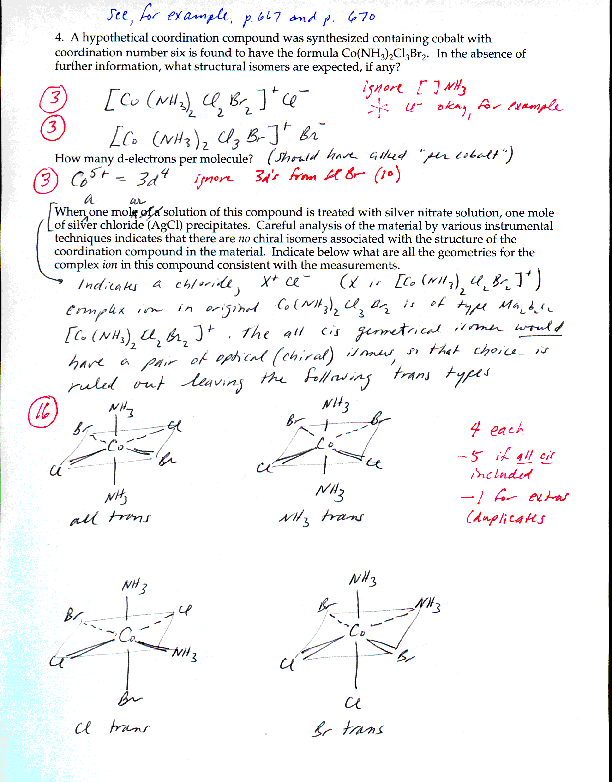 See, for example, p. 667 and p. 670
4. A hypothetical coordination compound was synthesized containing cobalt with
coordination number six is found to have the formula Co(NH3)2Cl3Br2. In the absence of
further information, what structural isomers are expected, if any?
ignore [ ] NH3
3 [Co (NH3)2 Cl2 Br2]+ Cl-
Cl- okay, for example
3
[Co (NH3)2 Cl3 Br]+ Br-
How many d-electrons per molecule? (should have asked "per cobalt")
3 Co5+ = 3d4 ignore 3d's from Br (10)
a or
When one mole of a solution of this compound is treated with silver nitrate solution, one mole
of silver chloride (AgCl) precipitates. Careful analysis of the material by various instrumental
techniques indicates that there are no chiral isomers associated with the structure of the
coordination compound in the material. Indicate below what are all the geometries for the
complex ion in this compound consistent with the measurements.
Indicates a chloride, X+ Cl- (X is [Co(NH3)2 Cl2 Br2]+)
complex ion in original Co(NH3)2 Cl3 Br2 is of type Ma2b2c2
[Co(NH3)2 Cl2 Br2]+. The all cis geometrical isomer would
have a pair of optical (chiral) isomers, so that choice is
ruled out leaving the following trans types
16
NH3 NH3
Br Cl Br Br
4 each
Co Co
Cl Br Cl Cl
-5 if all cis
included
NH3 NH3
-1 for extras
all trans NH3 trans
(duplicates
NH3 NH3
Br Cl Br NH3
Co Co
Cl NH3 Cl Br
Br Cl
Cl trans Br trans